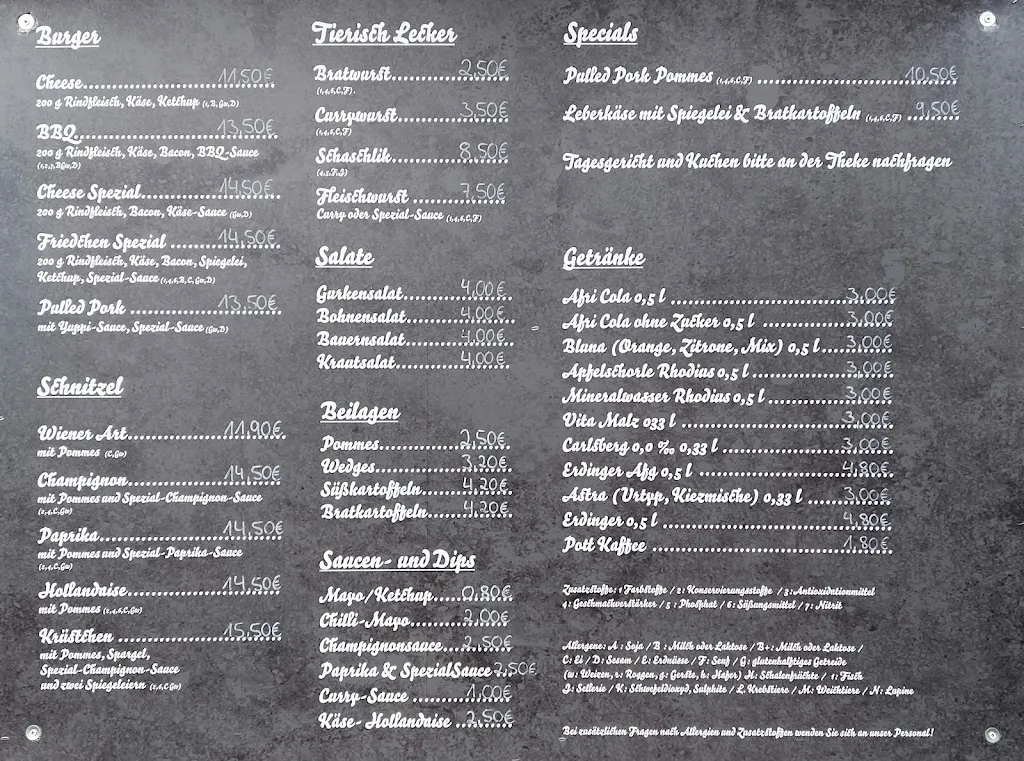 Burger
Cheese 11,50€
200 g Rindfleisch, Käse, Ketchup
BBQ 13,50€
200 g Rindfleisch, Käse, Bacon, BBQ-Sauce
Cheese Spezial 14,50€
200 g Rindfleisch, Bacon, Käse-Sauce (Gw,D)
Friedchen Spezial 14,50€
200 g Rindfleisch, Käse, Bacon, Spiegelei,
Ketchup, Spezial-Sauce (1,4,6,B,C,Gw,D)
Pulled Pork 13,50€
mit Yuppi-Sauce, Spezial-Sauce (Gw,D)
Schnitzel
Wiener Art 11,90€
mit Pommes (C,Gw)
Champignon 14,50€
mit Pommes und Spezial-Champignon-Sauce
(2,4,C,Gw)
Paprika 14,50€
mit Pommes und Spezial-Paprika-Sauce
(2,4,C,Gw)
Hollandaise 14,50€
mit Pommes (1,4,6,C,Gw)
Krüstchen 15,50€
mit Pommes, Spargel,
Spezial-Champignon-Sauce
und zwei Spiegeleiern (1,6,C,Gw)
Tierisch Lecker
Bratwurst 2,50€
(1,4,6,C,F)
Currywurst 3,50€
(1,4,6,C,F)
Schaschlik 8,50€
Fleischwurst 7,50€
Curry oder Spezial-Sauce (1,4,6,C,F)
Salate
Gurkensalat 4,00€
Bohnensalat 4,00€
Bauernsalat 4,00€
Krautsalat 4,00€
Beilagen
Pommes 2,50€
Wedges 3,20€
Süßkartoffeln 4,20€
Bratkartoffeln 4,20€
Saucen- und Dips
Mayo/Ketchup 0,80€
Chilli-Mayo 2,00€
Champignonsauce 2,50€
Paprika & SpezialSauce 2,50€
Curry-Sauce 1,00€
Käse- Hollandaise 2,50€
Specials
Pulled Pork Pommes (1,4,6,C,F) 10,50€
Leberkäse mit Spiegelei & Bratkartoffeln (1,4,6,C,F) 9,50€
Tagesgericht und Kuchen bitte an der Theke nachfragen
Getränke
Afri Cola 0,5 l 3,00€
Afri Cola ohne Zucker 0,5 l 3,00€
Bluna (Orange, Zitrone, Mix) 0,5 l 3,00€
Apfelschorle Rhodius 0,5 l 3,00€
Mineralwasser Rhodius 0,5 l 3,00€
Vita Malz 033 l 3,00€
Carlsberg 0,0 ‰ 0,33 l 3,00€
Erdinger Afg 0,5 l 4,80€
Astra (Urtyp, Kiezmische) 0,33 l 3,00€
Erdinger 0,5 l 4,80€
Pott Kaffee 1,80€
Zusatzstoffe: 1 Farbstoffe / 2: Konservierungsstoffe / 3: Antioxidationmittel
4: Geschmackverstärker / 5 : Phosphat / 6 : Süßungsmittel / 7: Nitrit
Allergene: A : Soja / B : Milch oder Laktose / B+: Milch oder Laktose /
C: Ei / D: Sesam / E: Erdnüsse / F: Senf / G: glutenhalftiges Getreide
(w: Weizen, r: Roggen, g: Gerste, h: Hafer) H: Schalenfrüchte / 1: Fisch
J: Sellerie / K: Schwefeldioxyd, Sulphite / L Krebstiere / M: Weichtiere / N: Lupine
Bei zusätzlichen Fragen nach Allergien und Zusatzstoffen wenden Sie sich an unser Personal!